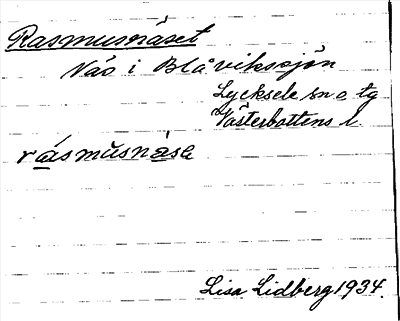 Rasmusnäset
Näs i Blåvikssjön
Lycksele sn o. tg
Västerbottens l.
rásmŭsnäse
Lisa Lidberg 1934.